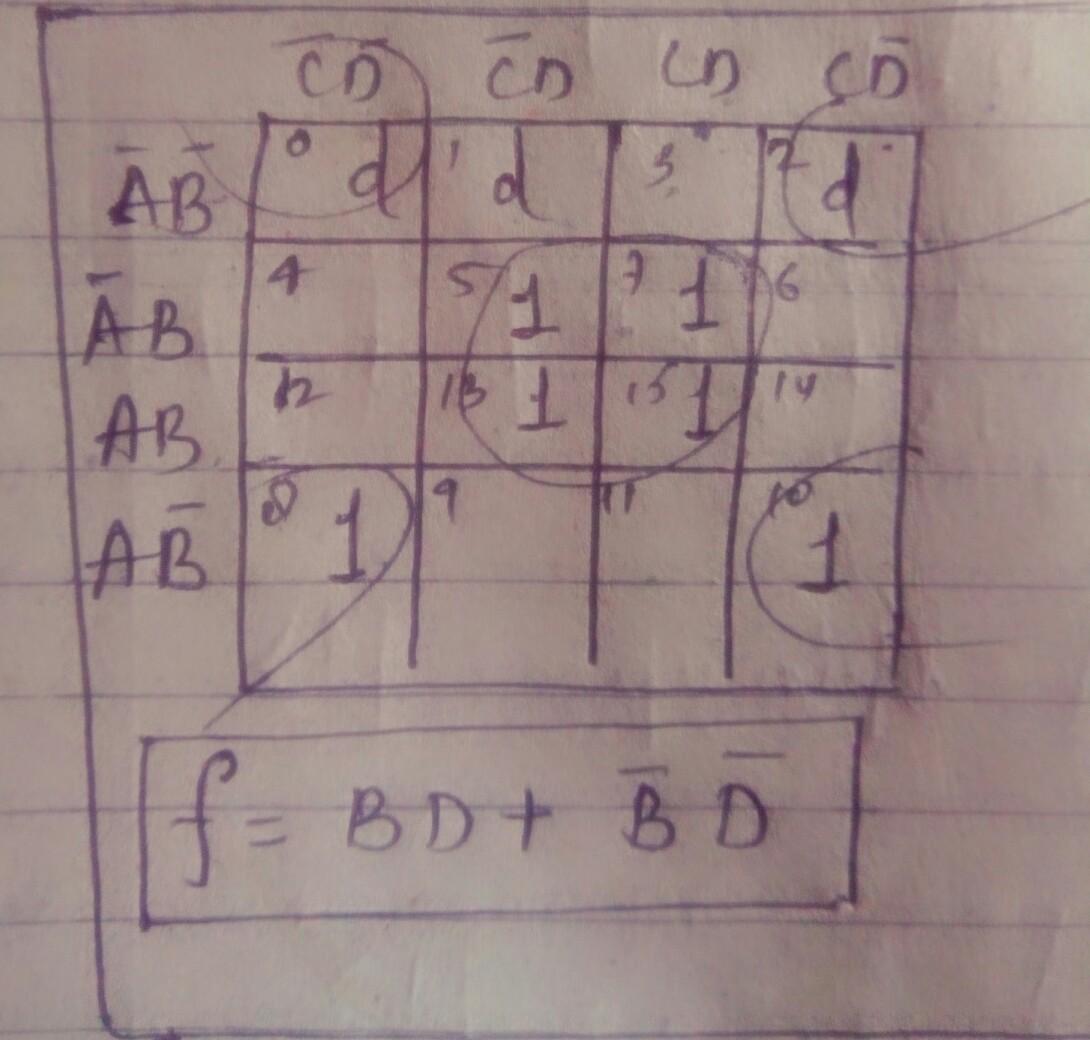 C̅D̅ C̅D CD CD̅
A̅B̅ 0 d 1 d 3 2 d
A̅B 4 5 1 7 1 6
AB 12 13 1 15 1 14
AB̅ 8 1 9 11 10 1
f = BD + B̅ D̅